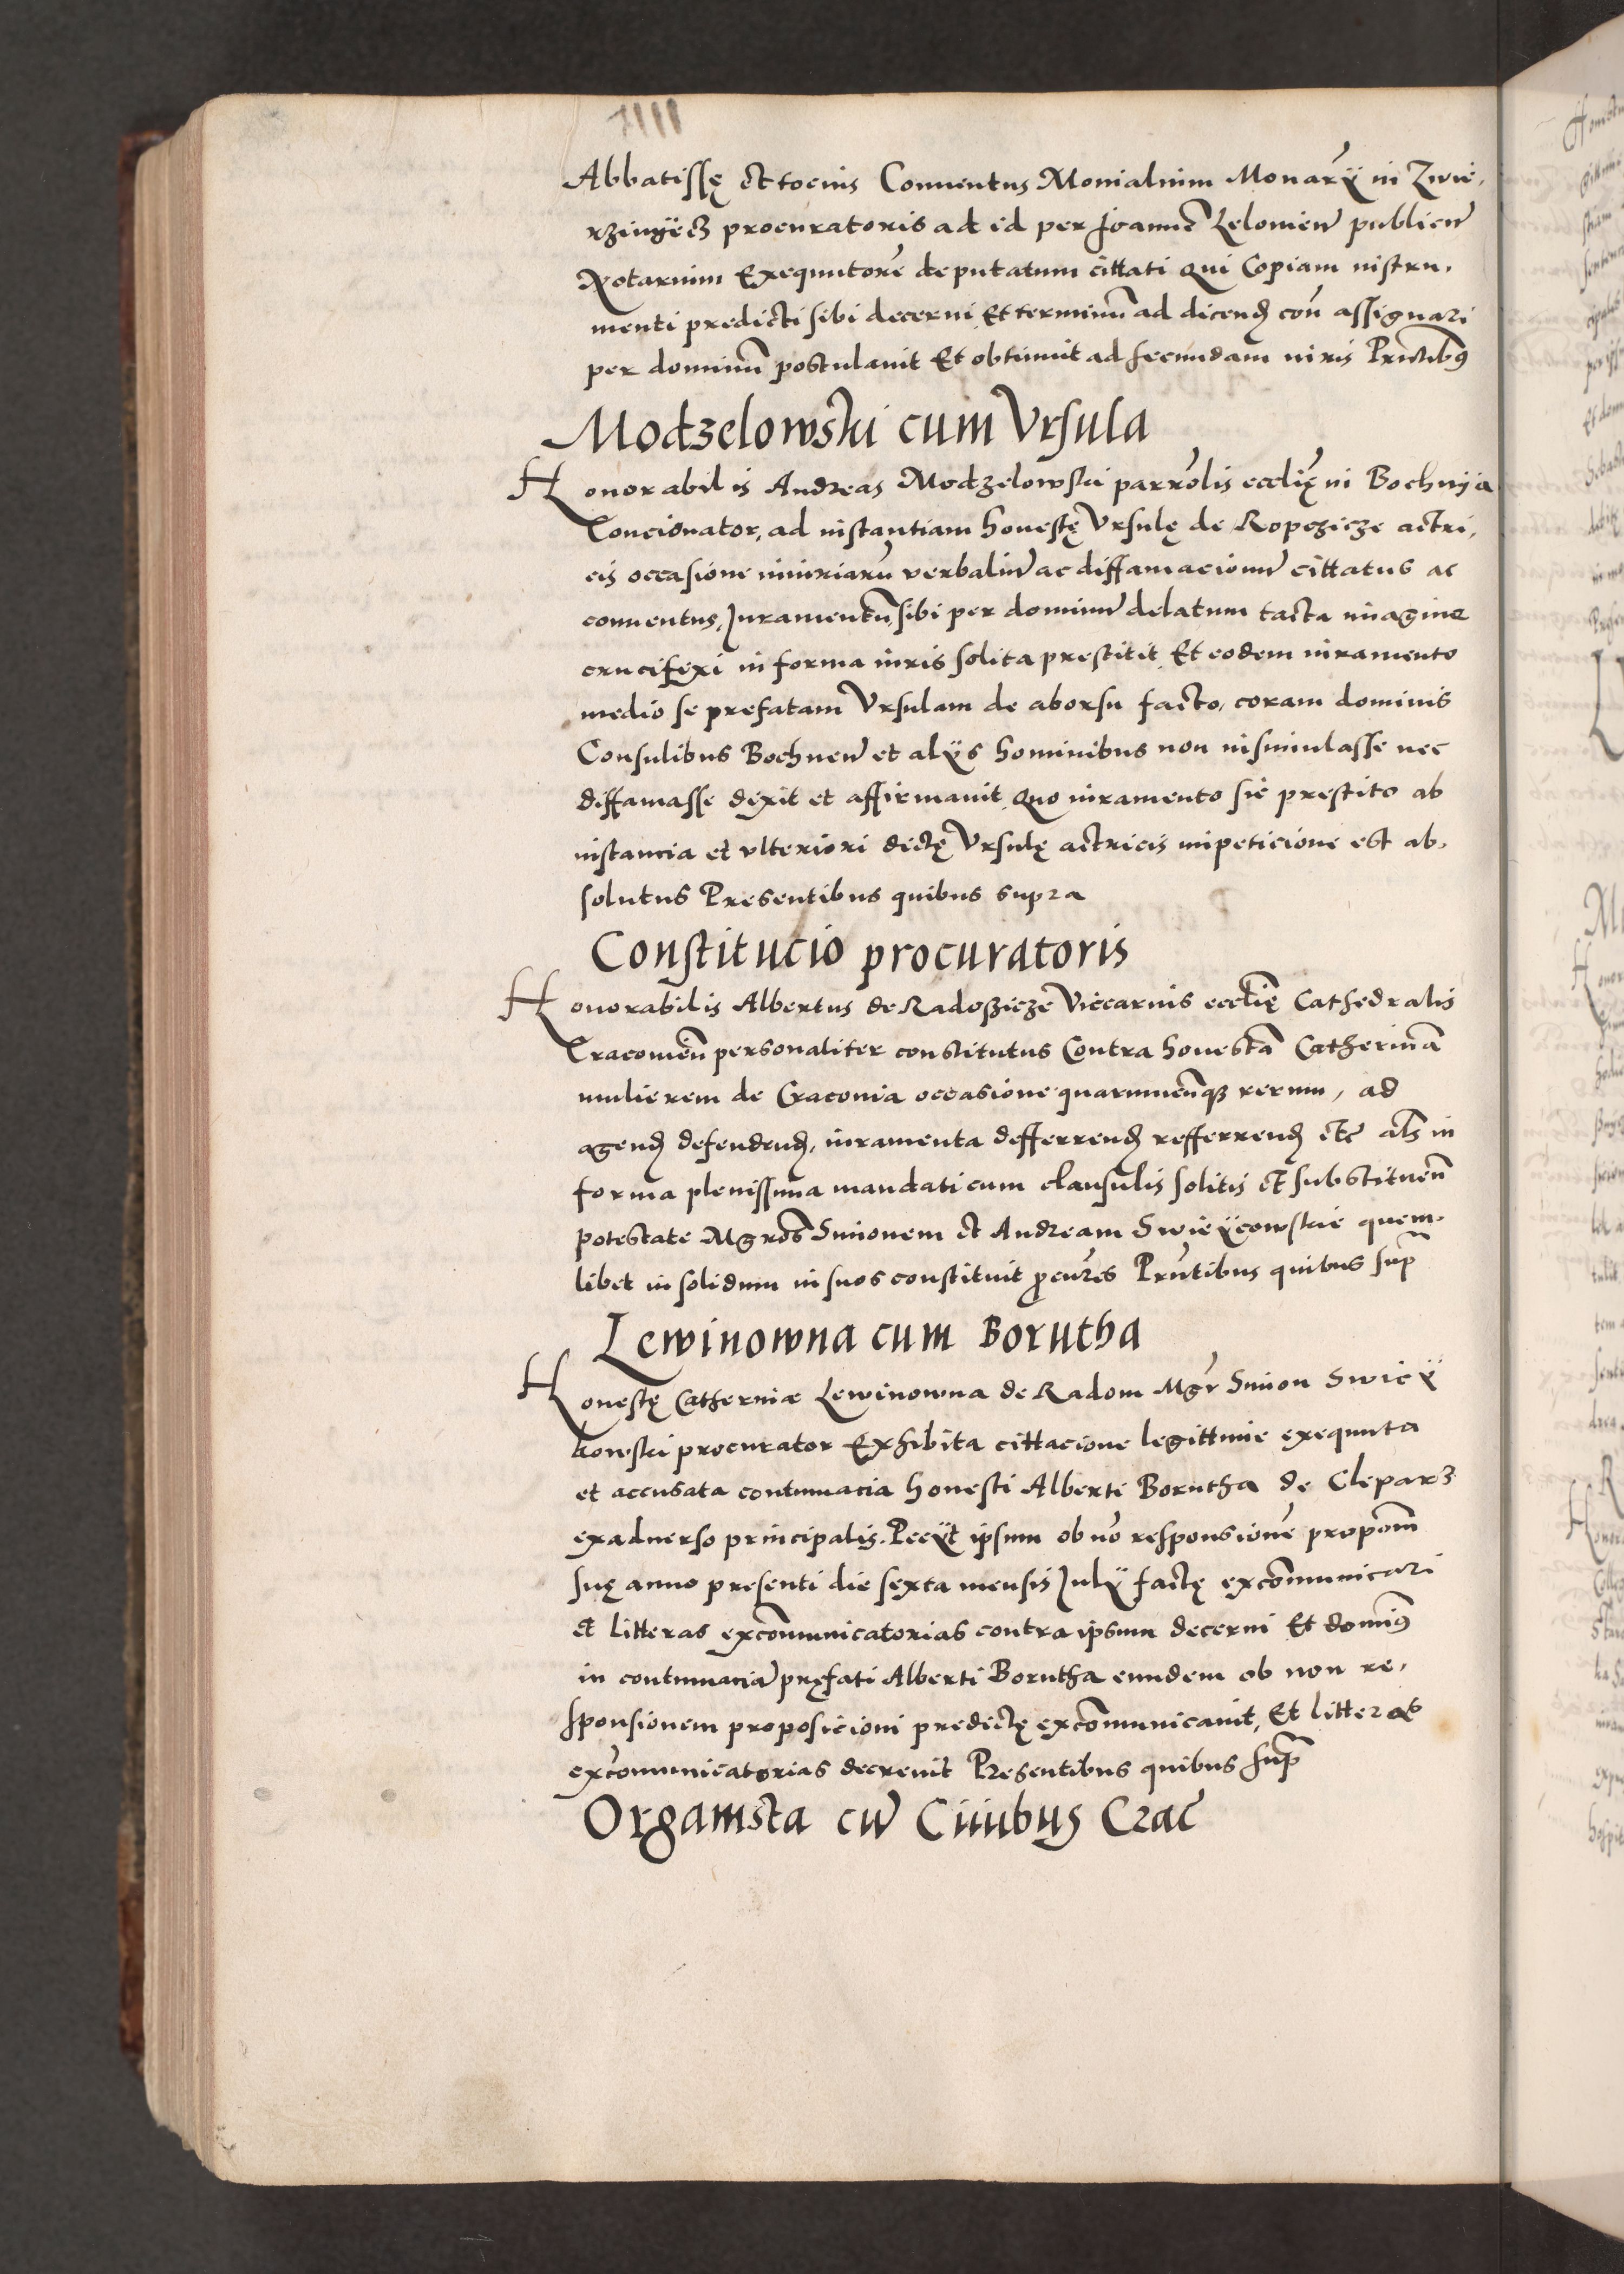 Abbatissę et tocius Conuentus Monialium Monarÿ in Zwie,
rziniëcz procuratoris ad id per Joannē Lelowien publicū
Notarium Exequutorē deputatum cittati Qui Copiam instru,
menti predicti sibi decerni Et terminū ad dicend con assignari
per dominū postulauit Et obtinuit ad secundam iuris Prntibus
Modzelowski cum Vrsula
Honorabilis Andreas Modzelowski parrolis ecclię in Bochnÿa
Concionator, ad instantiam honestę Vrsulę de Ropczicze actri,
cis occasione iniuriarū verbaliū ac diffamacionū cittatus ac
conuentus, Juramentū sibi per dominū delatum tacta imagine
crucifixi in forma iuris solita prestitit Et eodem iuramento
medio se prefatam Vrsulam de aborsu facto, coram dominis
Consulibus Bochnen et alÿs hominibus non insimulasse nec
diffamasse dixit et affirmauit Quo iuramento sic prestito ab
instancia et vlteriori dictę Vrsulę actricis impeticione est ab,
solutus Presentibus quibus supra
Constitucio procuratoris
Honorabilis Albertus de Radoszicze Viccarius ecclię Cathedralis
Cracouien personaliter constitutus Contra honestā Catherinā
mulierem de Cracouia occasione quarumcunqz rerum, ad
agend defendend, iuramenta defferrend refferrend etc als in
forma plenissima mandati cum clausulis solitis et substituen
potestate Mgros Simonem et Andream Swieÿcowskie quem,
libet in solidum in suos constituit procures Prntibus quibus sup
Lewinowna cum Borutha
Honestę Catherinæ Lewinowna de Radom Mgr Simon Swieÿ
kowski procurator Exhibita cittacione legittime exequuta
et accusata contumacia honesti Alberti Borutha de Cleparz
exaduerso principalis. Peciit ipsum ob nō responsionē propom
suę anno presenti die sexta mensis Julÿ factę excōmunicari
et litteras excōmunicatorias contra ipsum decerni Et domius
in contumaciā pręfati Alberti Borutha eundem ob non re,
sponsionem proposicioni predictę excōmunicauit, Et litteras
excōmunicatorias decreuit Presentibus quibus sup
Organista cū Ciuibus Crac